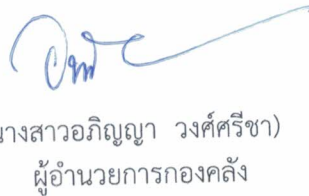 นางสาวอภิญญา วงศ์ศรีชา)
ผู้อำนวยการกองคลัง